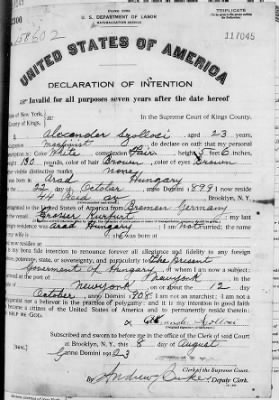 U. S. DEPARTMENT OF LABOR
NATURALIZATION SERVICE
TRIPLICATE
No. 117045
158602
UNITED STATES OF AMERICA
DECLARATION OF INTENTION
Invalid for all purposes seven years after the date hereof
of New York,
of Kings,
In the Supreme Court of Kings County.
Alexander Szollosi, aged 23 years,
Machinist, do declare on oath that my personal
Color White, complexion Fair, height 5 feet 6 inches,
130 pounds, color of hair Brown, color of eyes Brown
visible distinctive marks None
Arad Hungary
22 day of October, anno Domini 1899; I now reside
44 av Brooklyn, N. Y.
from Bremen Germany
; my last
residence was Arad Hungary; I am not married; the name
was born at
my bona fide intention to renounce forever all allegiance and fidelity to any foreign
potentate, state, or sovereignty, and particularly to The present
Government of Hungary, of whom I am now a subject;
at the port of Newyork
Newyork, on or about the 12 day
October, anno Domini 1908; I am not an anarchist; I am not a
believer in the practice of polygamy; and it is my intention in good faith
a citizen of the United States of America and to permanently reside therein:
HELP ME GOD.
Subscribed and sworn to before me in the office of the Clerk of said Court
at Brooklyn, N. Y., this 8 day of August
anno Domini 1923
Clerk of the Supreme Court.
By Andrew, Deputy Clerk.